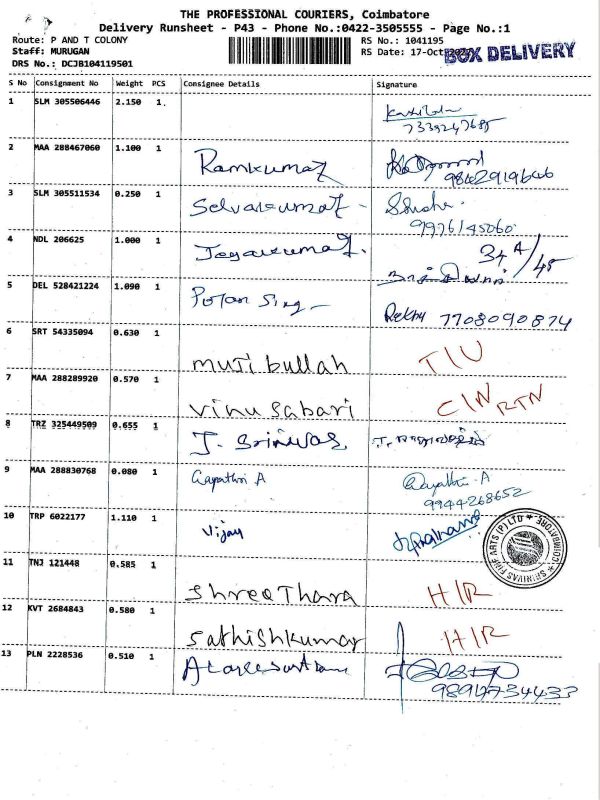 THE PROFESSIONAL COURIERS, Coimbatore
Delivery Runsheet - P43 - Phone No.:0422-3505555 - Page No.:1
Route: P AND T COLONY
Staff: MURUGAN
DRS No.: DCJB104119501
RS No.: 1041195
RS Date: 17-Oct
BOX DELIVERY
S No Consignment No Weight PCS Consignee Details Signature
1 SLM 305506446 2.150 1
7339247685
2 MAA 288467060 1.100 1 Ramkumar
9842919646
3 SLM 305511534 0.250 1 Selvakumar
9976145060
4 NDL 206625 1.000 1 Jegakumar
34 A/45
5 DEL 528421224 1.090 1 Potan Sing
Rekha 7708090874
6 SRT 54335094 0.630 1 mujibullah TIU
7 MAA 288289920 0.570 1 vinu sabari C/N RTN
8 TRZ 325449509 0.655 1 J. Srinivas
9 MAA 288830768 0.080 1 Gayathri A Gayathri. A
9944268652
10 TRP 6022177 1.110 1 Vijay
SRINIVAS FINE ARTS (P) LTD COIMBATORE
11 TNJ 121448 0.585 1 shreeThara H/R
12 KVT 2684843 0.580 1 sathishkumar H/R
13 PLN 2228536 0.510 1
9894734433